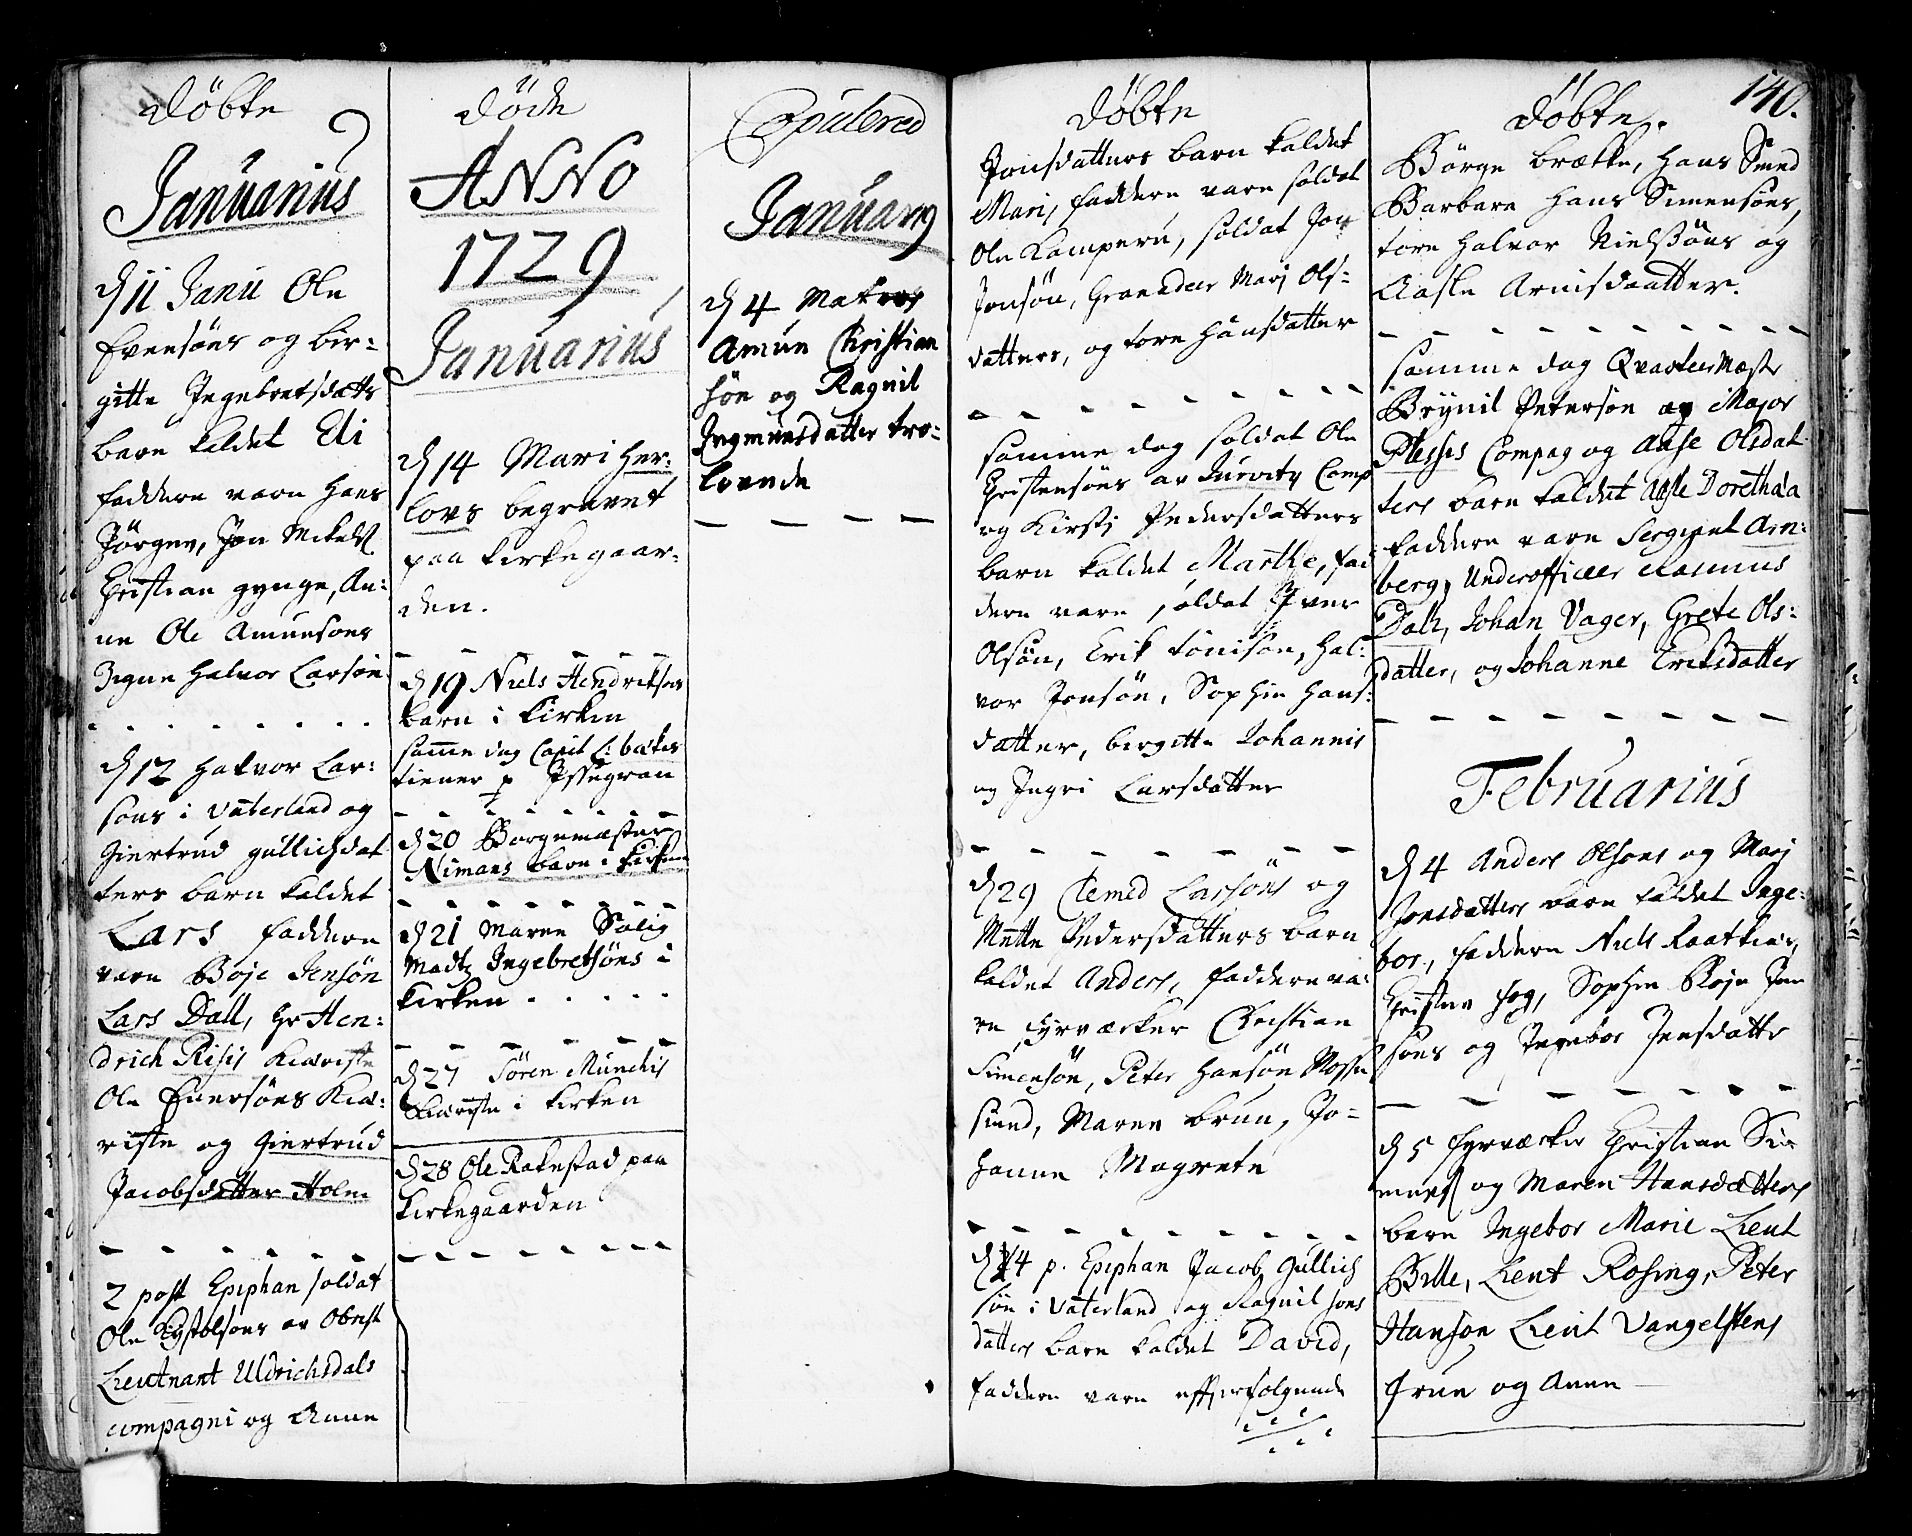 Döbte
Januarius
D 11 Janu Ole
Evensöns og bir-
gitte Ingebretsdatts
barn kaldet Eli
faddere vare Hans
Jörgen, Jon Mikels
Christian gynge, An-
ne Ole Amunsons
Signe Halvor Larsön
D 12 Halvor Lar-
sons i Vaterland og
Giertrud gullichdat
ters barn kaldet
Lars faddere
vare Böje Jensön
Lars Dall, Hr Hen-
drich Risis Kiæriste
Ole Enersöns Kiæ-
riste og Giertrud
Jacobsdatter Holm
2 post Epiphan soldat
Ole Kystolsons av Obrist
Lieutnant Uldrichsdals
compagni og Anne
Döde
ANNO
1729
Januarius
D 14 Mari Her-
lovs begravet
paa kirkegaar-
den.
D 19 Niels Hendriksens
barn i kirken
samme dag Capit L: bækes
tiener p Issegran
D 20 Borgemæster
Nimans barn i kirken
D 21 Maren Salig
Madtz Ingebretsöns i
kirken
D 27 Sören Munchis
Kiæriste i kirken
D 28 Ole Rakestad paa
kirkegaarden
Copulered
Januarij
D 4 Matros
Amun Christian
sön og Ragnil
Ingmunsdatter tro-
lovede
Döbte
Jonsdatters barn kaldet
Mari, faddere vare soldat
Ole Kamperu, soldat Jon
Jonsön, Granadeer Marj Ols-
datters, og tore Hansdatter
samme dag soldat Ole
Christensöns av Jurvitz Comp
og Kirstj Pedersdatters
barn kaldet Marthe, fad
dere vare soldat Iver
Olsön, Erik tönisön, Hal-
vor Jonsön, Sophie Hans-
datter, birgitte Johannis
og Ingri Larsdatter
D 29 Clemed Larsöns og
Mette Pedersdatters barn
kaldet Anders, faddere va-
re fyrværker Christian
Simensön, Peter Hansön Mosse
sund, Maren brun, Jo-
hanne Magrete
D 4 p. Epiphan Jacob Gullich
sön i Vaterland og Ragnil Jons
datters barn kaldet David,
faddere vare efterfölgende
140.
Döbte.
Börge brække, Hans Smed
Barbara Hans Simensöns,
tore Halvor Nielsöns og
Aasle Arnisdaatter.
samme dag Qvarteermæste
Brynil Petersön av Major
Plesses Compag og Aase Olsdat
ters barn kaldet Aasle Dorethæa
faddere vare Sergient Arn-
berg, Underofficeer Rasmus
Dall, Johan Vager, Grete Ols-
datter, og Johanne Eriksdatter
Februarius
D 4 Anders Olsons og Marj
Jonsdatters barn kaldet Inge-
bor, faddere Niels Raatkiær,
Christen fog, Sophie Böje Jen
sons og Ingebor Jensdatter
D 5 fyrværker Christian Si-
mens og Maren Hansdatters
barn Ingebor Marie Lieut
Bille, Lieut Rosing, Peter
Hanson Lieut Vangelstens
frue og Anne